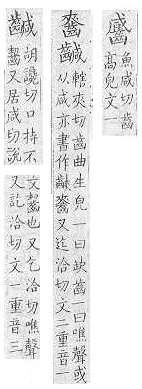 魚咸切齒
高皃文一
䶢
轄夾切齒曲生皃一曰缺齒一曰噍聲或
从咸亦書作又迄洽切文二重音一
䶢
胡讒切口持不
齧又居咸切說
文齧也又乞洽切噍聲
又訖洽切文一重音三